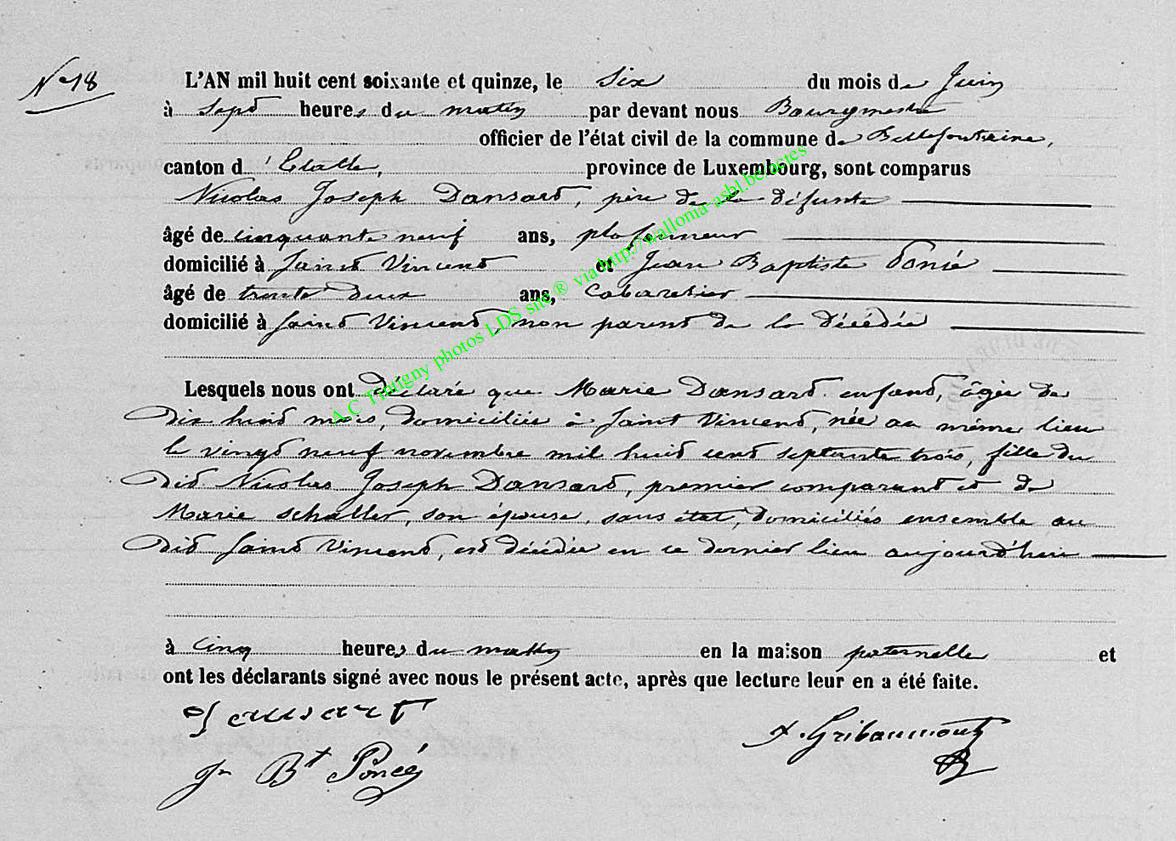 N° 18
L'AN mil huit cent soixante et quinze, le six du mois de Juin
à sept heures du matin par devant nous Bourgmestre
officier de l'état civil de la commune de Bellefontaine,
canton d'Etalle, province de Luxembourg, sont comparus
Nicolas Joseph Dansart, père de la défunte
âgé de cinquante neuf ans, plafonneur
domicilié à Saint Vincent et Jean Baptiste Poncé
âgé de trente deux ans, cabaretier
domicilié à Saint Vincent, non parent de la décédée
Lesquels nous ont déclaré que Marie Dansart enfant, âgée de
dix huit mois, domiciliée à Saint Vincent, née au même lieu
le vingt neuf novembre mil huit cent septante trois, fille du
dit Nicolas Joseph Dansart, premier comparant et de
Marie Schaller, son épouse, sans état, domiciliés ensemble au
dit Saint Vincent, est décédée en ce dernier lieu aujourd'hui
à cinq heures du matin en la maison paternelle et
ont les déclarants signé avec nous le présent acte, après que lecture leur en a été faite.
Dansart
Jn Bt Poncé
Gribaumont
A.C Tintigny photos LDS site ® via http://wallonia-asbl.be/actes